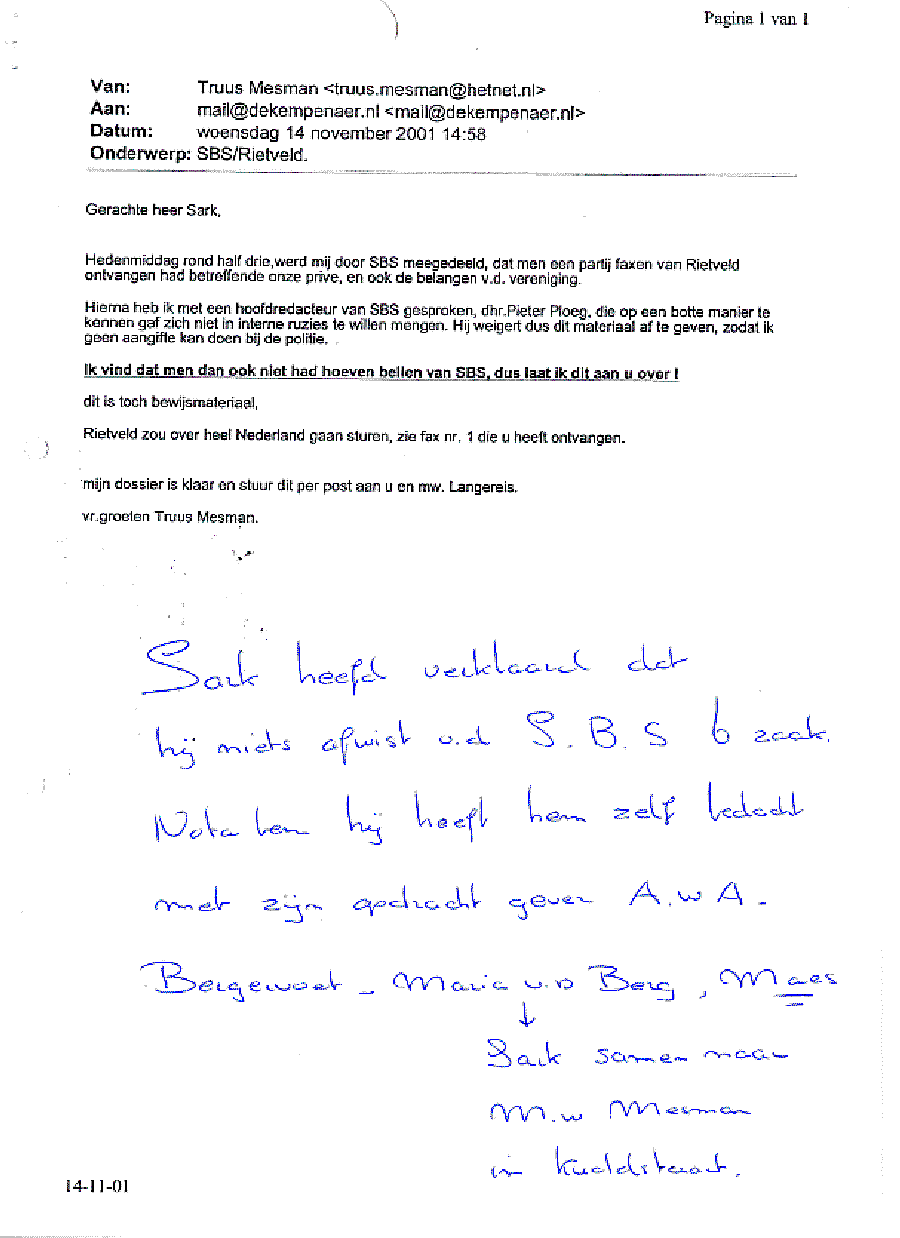 Pagina 1 van 1
Van: Truus Mesman <truus.mesman@hetnet.nl>
Aan: mail@dekempenaer.nl <mail@dekempenaer.nl>
Datum: woensdag 14 november 2001 14:58
Onderwerp: SBS/Rietveld.
Gerachte heer Sark,
Hedenmiddag rond half drie,werd mij door SBS meegedeeld, dat men een partij faxen van Rietveld
ontvangen had betreffende onze prive, en ook de belangen v.d. vereniging.
Hierna heb ik met een hoofdredacteur van SBS gesproken, dhr.Pieter Ploeg, die op een botte manier te
kennen gaf zich niet in interne ruzies te willen mengen. Hij weigert dus dit materiaal af te geven, zodat ik
geen aangifte kan doen bij de politie.
Ik vind dat men dan ook niet had hoeven bellen van SBS, dus laat ik dit aan u over !
dit is toch bewijsmateriaal,
Rietveld zou over heel Nederland gaan sturen, zie fax nr. 1 die u heeft ontvangen.
mijn dossier is klaar en stuur dit per post aan u en mw. Langereis.
vr.groeten Truus Mesman.
Sark heefd verklaard dat
hij niets afwist v.d S.B.S 6 zaak.
Nota ben hij heeft hem zelf bedacht
met zijn opdracht gever A.w A.
Bergewoet - Maria v.D Berg, Maes
↓
Sark samen naar
M.w Mesman
in Kudelstaart.
14-11-01